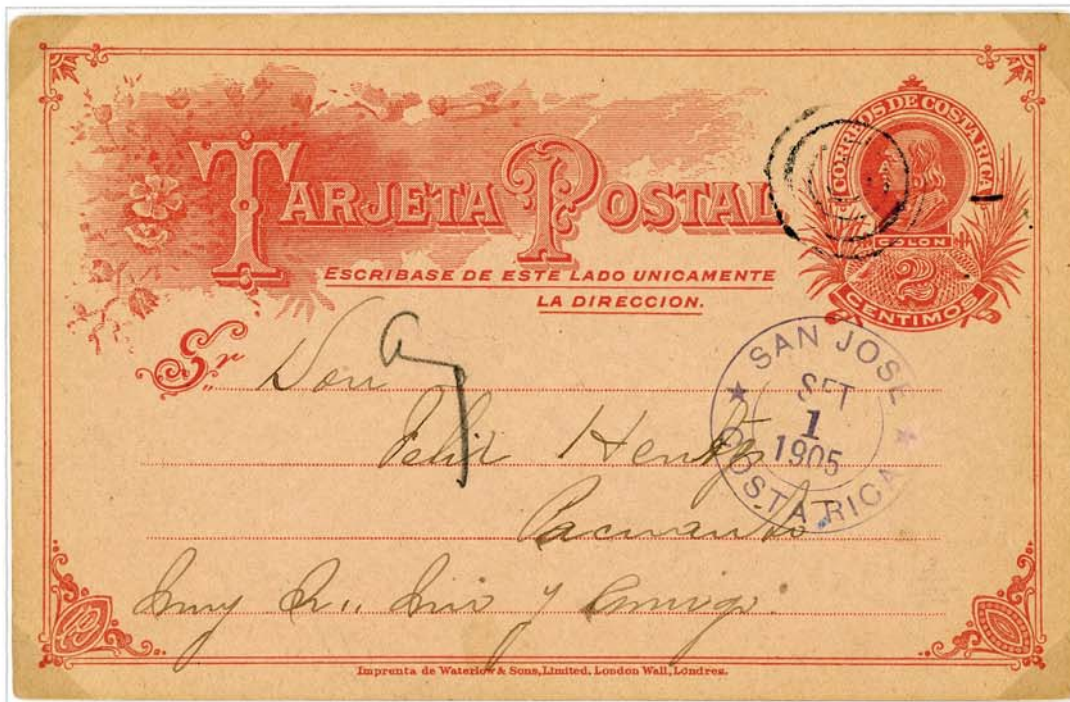 TARJETA POSTAL
CORREOS DE COSTA RICA
COLON
2
CENTIMOS
ESCRIBASE DE ESTE LADO UNICAMENTE
LA DIRECCION.
SAN JOSE
SET
1
1905
COSTA RICA
Sr Don
Felix
muy Sr. mio y amigo.
Imprenta de Waterlow & Sons, Limited, London Wall, Londres.